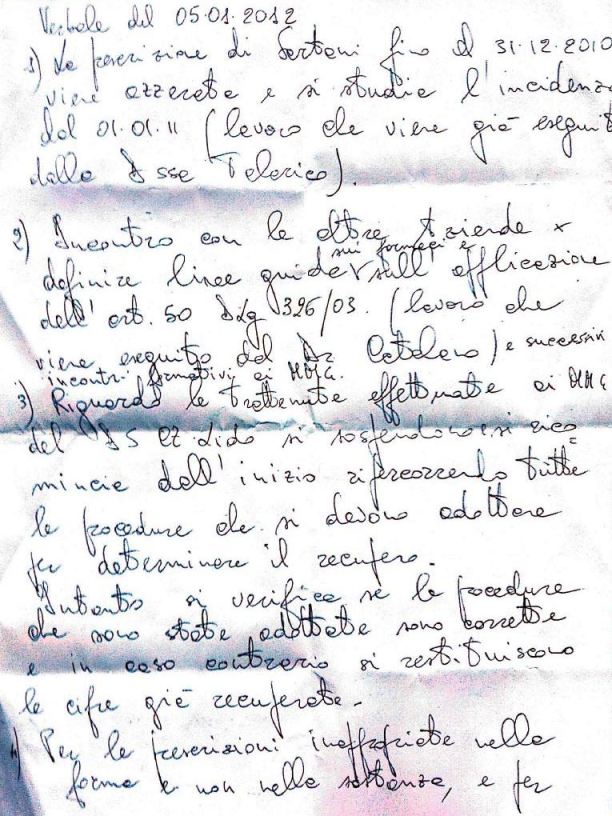 Verbale del 05.01.2012
1) La prescrizione di Sartani fino al 31.12.2010
viene azzerata e si studia l'incidenza
dal 01.01.11 (lavoro che viene già eseguit
dalla D.ssa
2) Incontro con le altre Aziende x
definire linee guida sui farmaci e sull'applicazione
dell'art. 50 326/03. (lavoro che
viene eseguito dal Dr Catalano) e successivi
incontri formativi ai MMG.
3) Riguardo le trattenute effettuate ai MMG
del DS si sospendono e si rico
mincia dall'inizio ripercorrendo tutte
le procedure che si devono adottare
per determinare il recupero.
Intanto si verifica se le procedure
che sono state adottate sono corrette
e in caso contrario si restituiscono
le cifre già recuperate.
4) Per le prescrizioni inappropriate nella
forma e non nella sostanza, e per